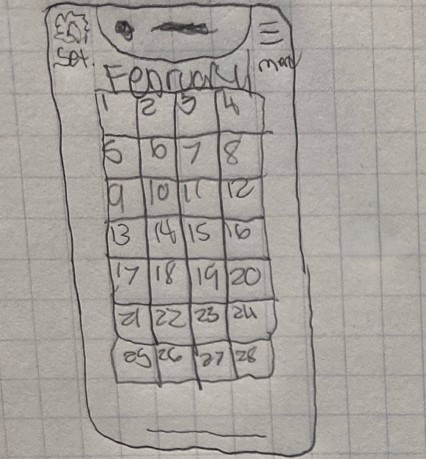 Set.
February
1 2 3 4
5 6 7 8
9 10 11 12
13 14 15 16
17 18 19 20
21 22 23 24
25 26 27 28